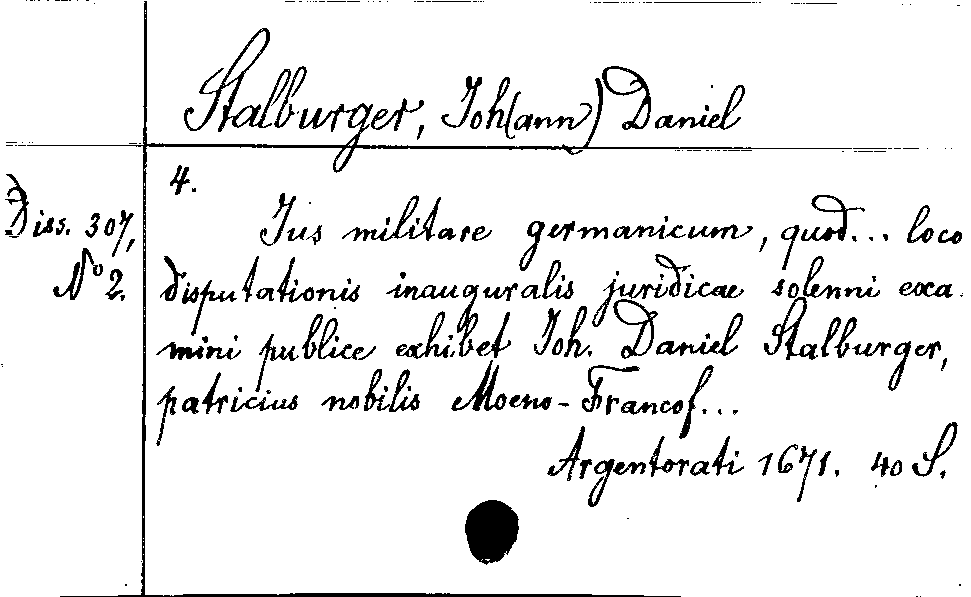 Stalburger, Joh(ann) Daniel
4.
Diss. 307,
No 2.
Jus militare germanicum, quod... loco
disputationis inauguralis juridicae solenni exa-
mini publice exhibet Joh. Daniel Stalburger,
patricius nobilis Moeno-Francof...
Argentorati 1671. 40 S.